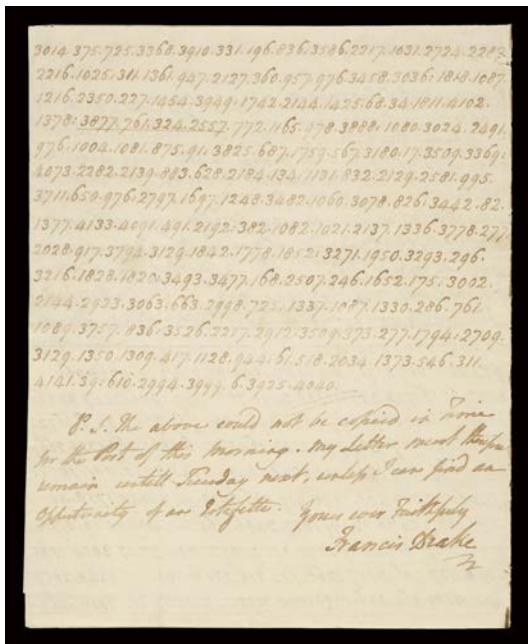 3014.375.725.3368.3910.331.196.836.3586.2217.1031.2724.2283.
2216.1025.311.1361.947.2127.360.957.976.3458.3036.1818.1087.
1216.2350.227.1454.3949.1742.2144.1425.68.34.1811.4102.
1378.3877.761.324.2557.772.1165.478.3888.1080.3024.2491.
976.1004.1081.875.91.3825.687.1759.567.3180.17.3509.3369.
4073.2282.2139.883.628.2184.134.1131.832.2129.2581.995.
3711.650.976.2797.1697.1248.3482.1060.3078.826.3442.82.
1377.4133.4091.491.2192.382.1082.1021.2137.1336.3778.277.
2028.917.3794.3129.1842.1778.1852.3271.1950.3293.296.
3216.1828.1820.3493.3477.168.2507.246.1652.175.3002.
2144.2923.3063.663.2998.725.1337.1087.1330.286.761.
1089.3757.836.3526.2217.2912.3509.373.277.1794.2709.
3129.1350.1309.417.1128.944.61.518.2034.1373.546.311.
4141.39.610.2994.3999.6.3925.4040.
P.S. The above could not be copied in Time
for the Post of this morning. My Letter must therefore
remain untill Tuesday next, unless I can find an
opportunity of an Estafette. Yours ever Faithfully
Francis Drake